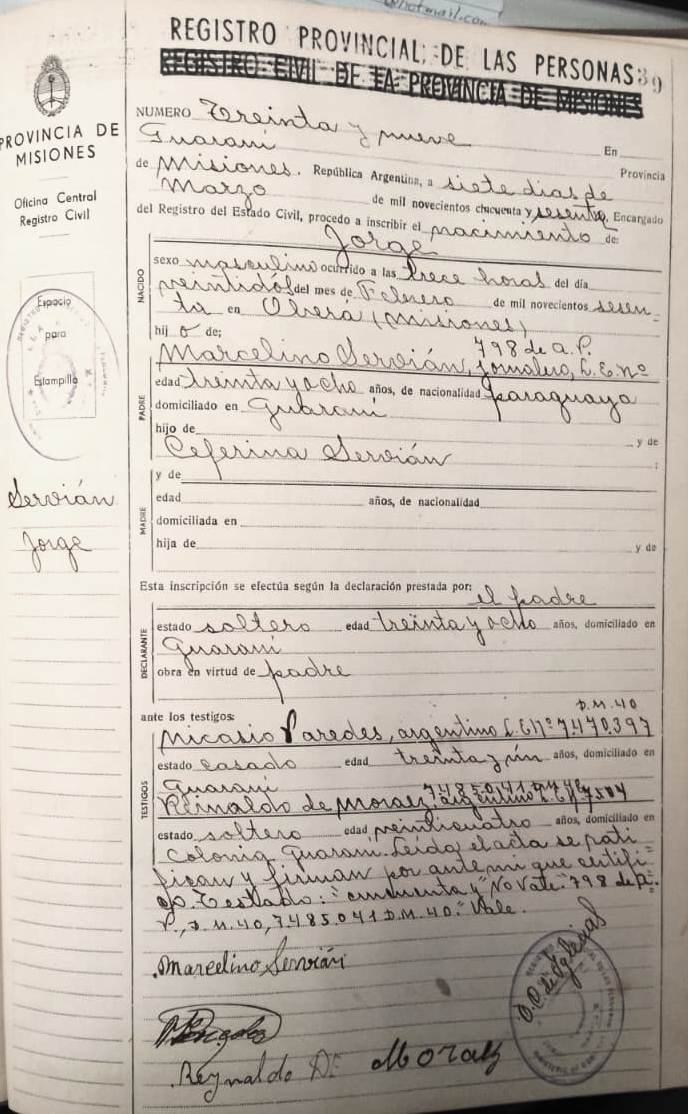 @hotmail.com
REGISTRO PROVINCIAL DE LAS PERSONAS 39
REGISTRO CIVIL DE LA PROVINCIA DE MISIONES
PROVINCIA DE
MISIONES
Oficina Central
Registro Civil
Espacio
para
Estampilla
Servián
Jorge
NUMERO Treinta y nueve
Guaraní En
de Misiones. República Argentina, a siete dias de Provincia
Marzo de mil novecientos cincuenta y sesenta, Encargado
del Registro del Estado Civil, procedo a inscribir el nacimiento de:
Jorge
NACIDO
sexo masculino ocurrido a las trece horas del día
veintidós del mes de Febrero de mil novecientos sesen=
ta en Oberá (Misiones)
hijo de;
798 de a. P.
Marcelino Servián, jornalero, L.E.nº
PADRE
edad treinta y ocho años, de nacionalidad paraguaya
domiciliado en Guaraní
hijo de y de
Ceferina Servián ;
MADRE
y de
edad años, de nacionalidad
domiciliada en
hija de y de
Esta inscripción se efectúa según la declaración prestada por: el padre
DECLARANTE
estado soltero edad treinta y ocho años, domiciliado en
Guaraní
obra en virtud de padre
ante los testigos: D.M. 40
Nicasio Paredes, argentino L.E.nº 7.470.397
TESTIGOS
estado casado edad treinta y un años, domiciliado en
Guaraní 7.485.041 D.M. 40
Reinaldo de Moraez, argentino L.E.nº 7504
estado soltero edad veinticuatro años, domiciliado en
Colonia Guaraní. Leída el acta se rati=
fican y firman por ante mi que certifi=
co. Testado: "cincuenta y" No vale. 798 de a.
P., D.M. 40, 7.485.041 D.M. 40." Vale.
Marcelino Servián
Reynaldo DE Moraez
O.C. de Iglesias